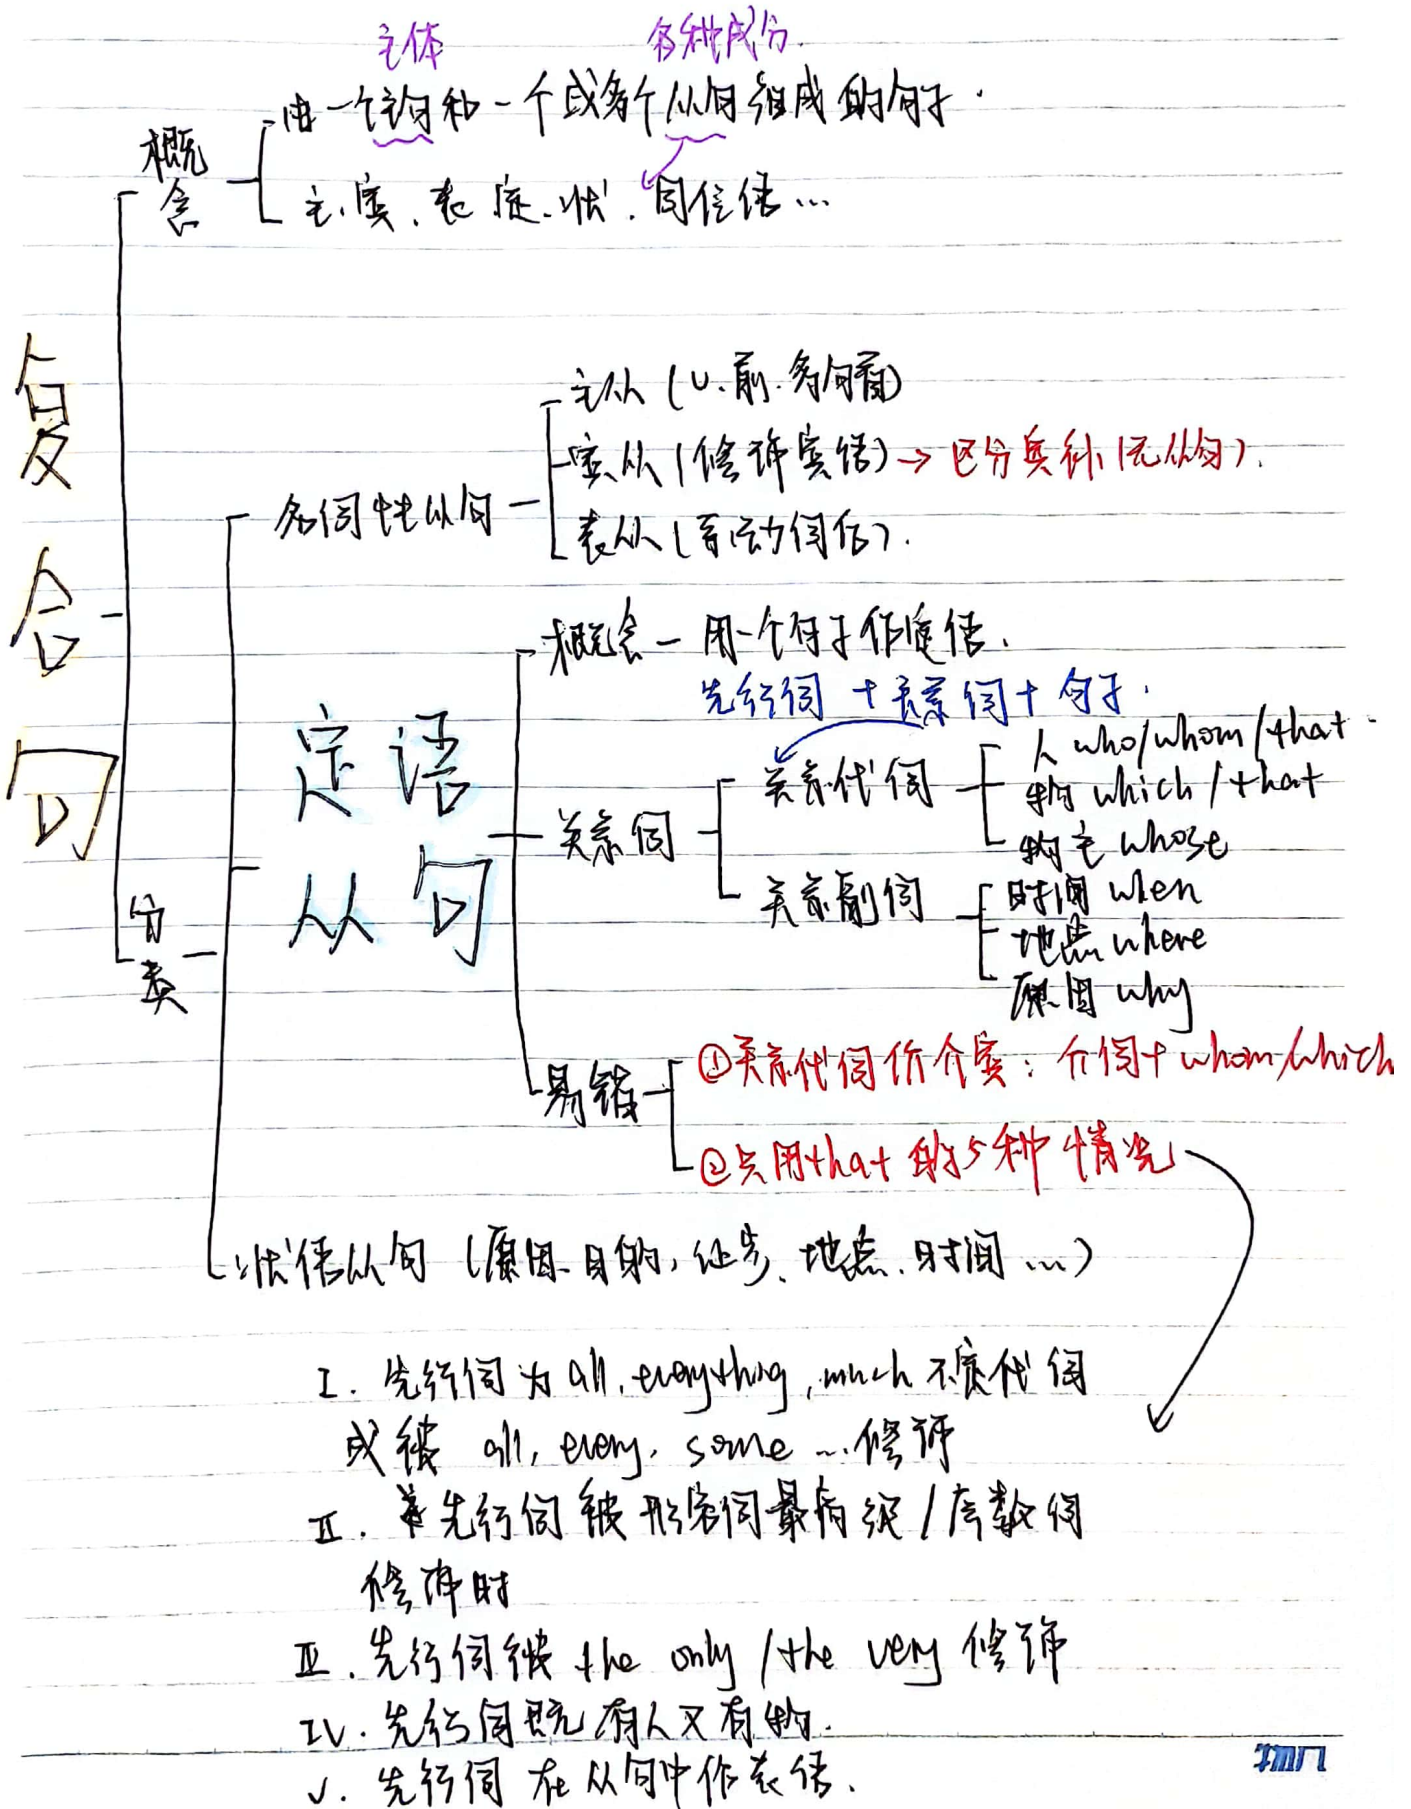 主体 多种成分
由一个主句和一个或多个从句组成的句子.
概念
主、宾、表、定、状、同位语...
复合句
主从(v.前.多句首)
宾从(修饰宾语)→区分宾补(无从句).
名词性从句
表从(系动词后).
概念-用一个句子作定语.
先行词+关系词+句子.
定语从句
人 who/whom/that
关系代词
物 which/that
关系词
物主 whose
关系副词
时间 when
地点 where
分类
原因 why
易错
①关系代词作介宾:介词+whom/which
②只用that的5种情况
状语从句(原因.目的,让步、地点、时间...)
I. 先行词为all, everything, much不定代词
或被 all, every, some ...修饰
II. 先行词被形容词最高级/序数词
修饰时
III. 先行词被 the only/the very 修饰
IV. 先行词既有人又有物.
V. 先行词在从句中作表语.